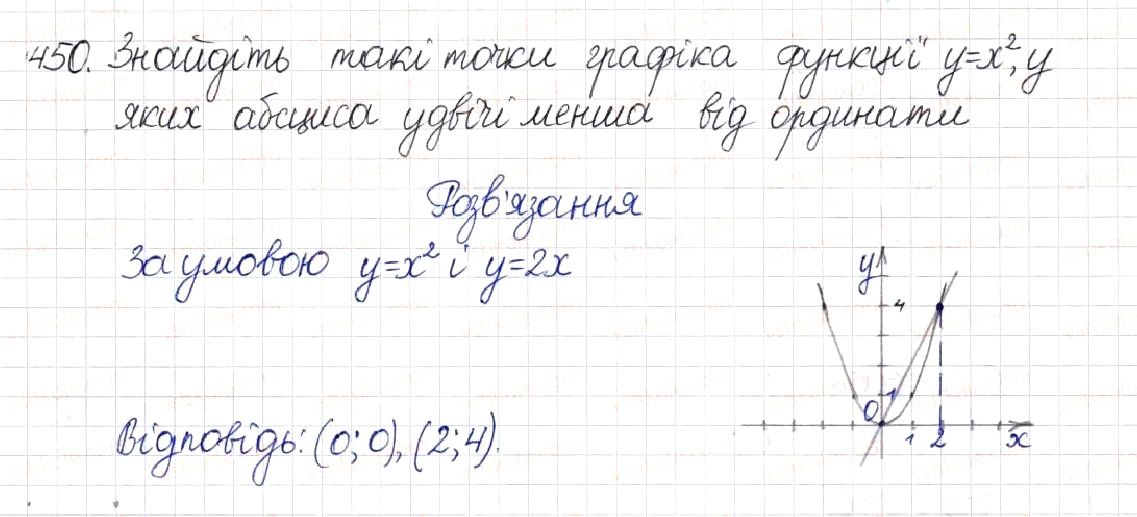 450. Знайдіть такі точки графіка функції y=x², у
яких абсциса удвічі менша від ординати
Розв'язання
За умовою y=x² і y=2x
y
4
1
0
1 2 x
Відповідь: (0; 0), (2; 4).